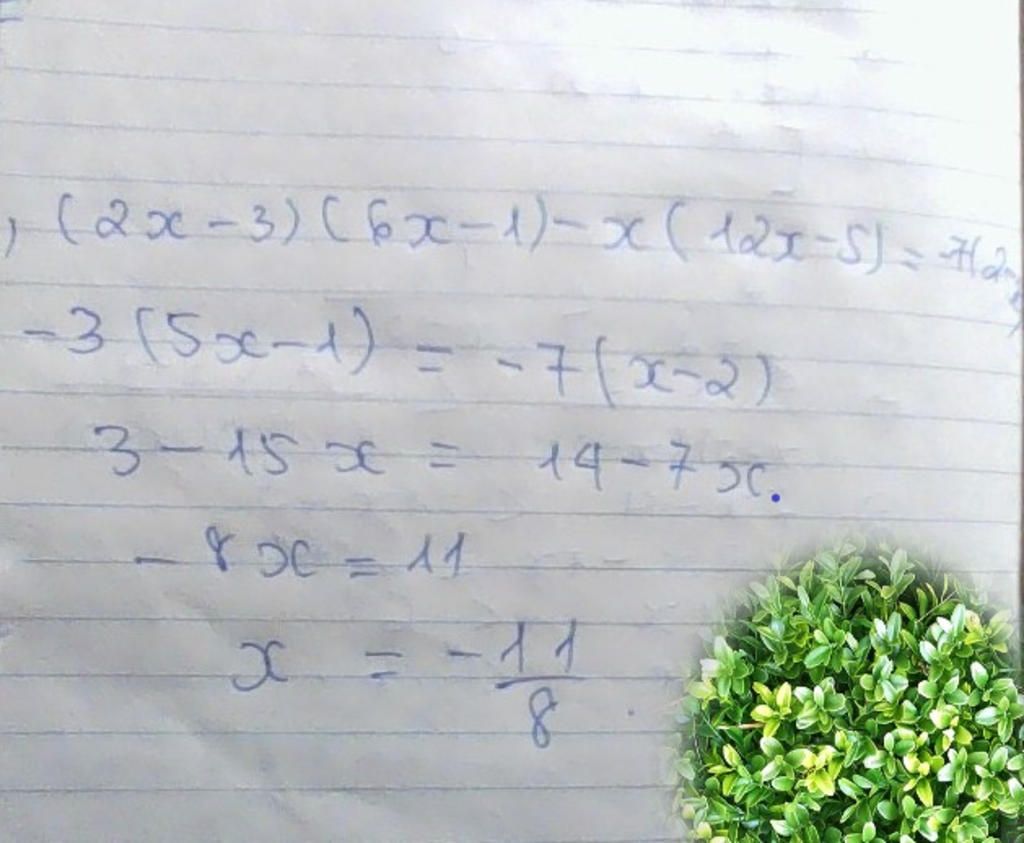 , (2x-3)(6x-1)-x(12x-5)=-7(2-x)
-3(5x-1)=-7(x-2)
3-15x=14-7x.
-8x=11
x=-11/8.